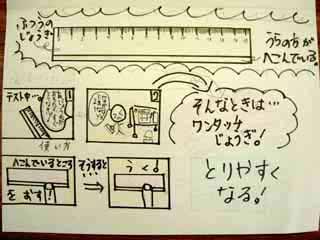 ふつうの
じょうぎ
うらの方が
へこんでいる。
テスト中…。
1
2
使い方
そんなときは…
ワンタッチ
じょうぎ!
へこんでいるところ
を おす!
そうすると
うく。
とりやすく
なる!